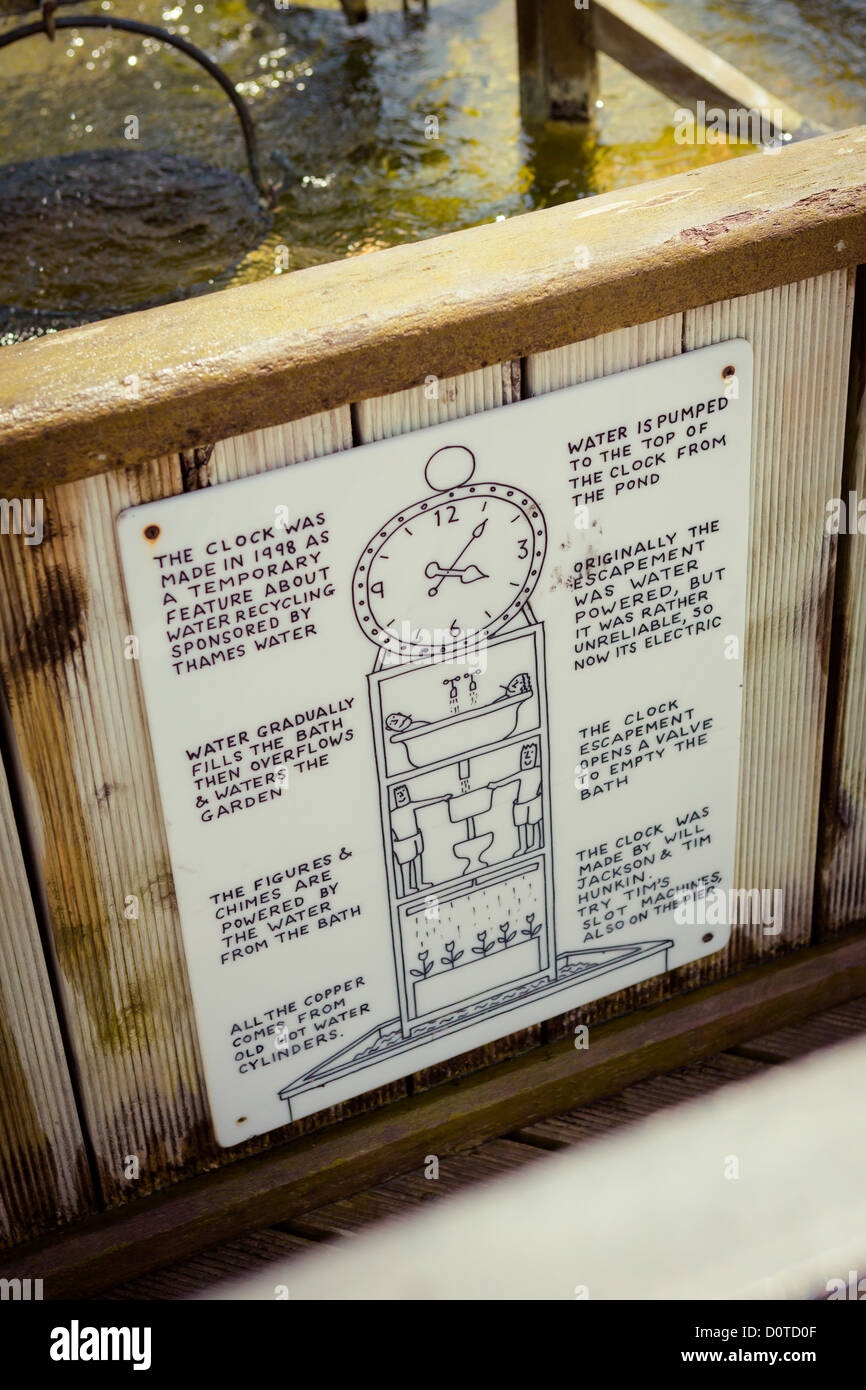 THE CLOCK WAS
MADE IN 1998 AS
A TEMPORARY
FEATURE ABOUT
WATER RECYCLING
SPONSORED BY
THAMES WATER
WATER GRADUALLY
FILLS THE BATH
THEN OVERFLOWS
& WATERS THE
GARDEN
THE FIGURES &
CHIMES ARE
POWERED BY
THE WATER
FROM THE BATH
ALL THE COPPER
COMES FROM
OLD HOT WATER
CYLINDERS.
12
3
6
9
WATER IS PUMPED
TO THE TOP OF
THE CLOCK FROM
THE POND
ORIGINALLY THE
ESCAPEMENT
WAS WATER
POWERED, BUT
IT WAS RATHER
UNRELIABLE, SO
NOW ITS ELECTRIC
THE CLOCK
ESCAPEMENT
OPENS A VALVE
TO EMPTY THE
BATH
THE CLOCK WAS
MADE BY WILL
JACKSON & TIM
HUNKIN.
TRY TIM'S
SLOT MACHINES,
ALSO ON THE PIER
alamy stock photo
D0TD0F
www.alamy.com